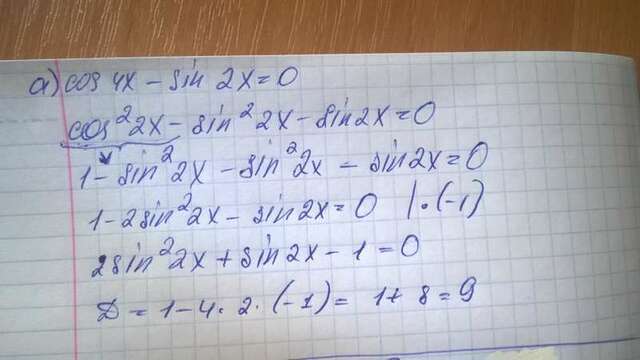 а) cos 4x - sin 2x = 0
cos² 2x - sin² 2x - sin 2x = 0
1 - sin² 2x - sin² 2x - sin 2x = 0
1 - 2sin² 2x - sin 2x = 0 | · (-1)
2sin² 2x + sin 2x - 1 = 0
D = 1 - 4 · 2 · (-1) = 1 + 8 = 9